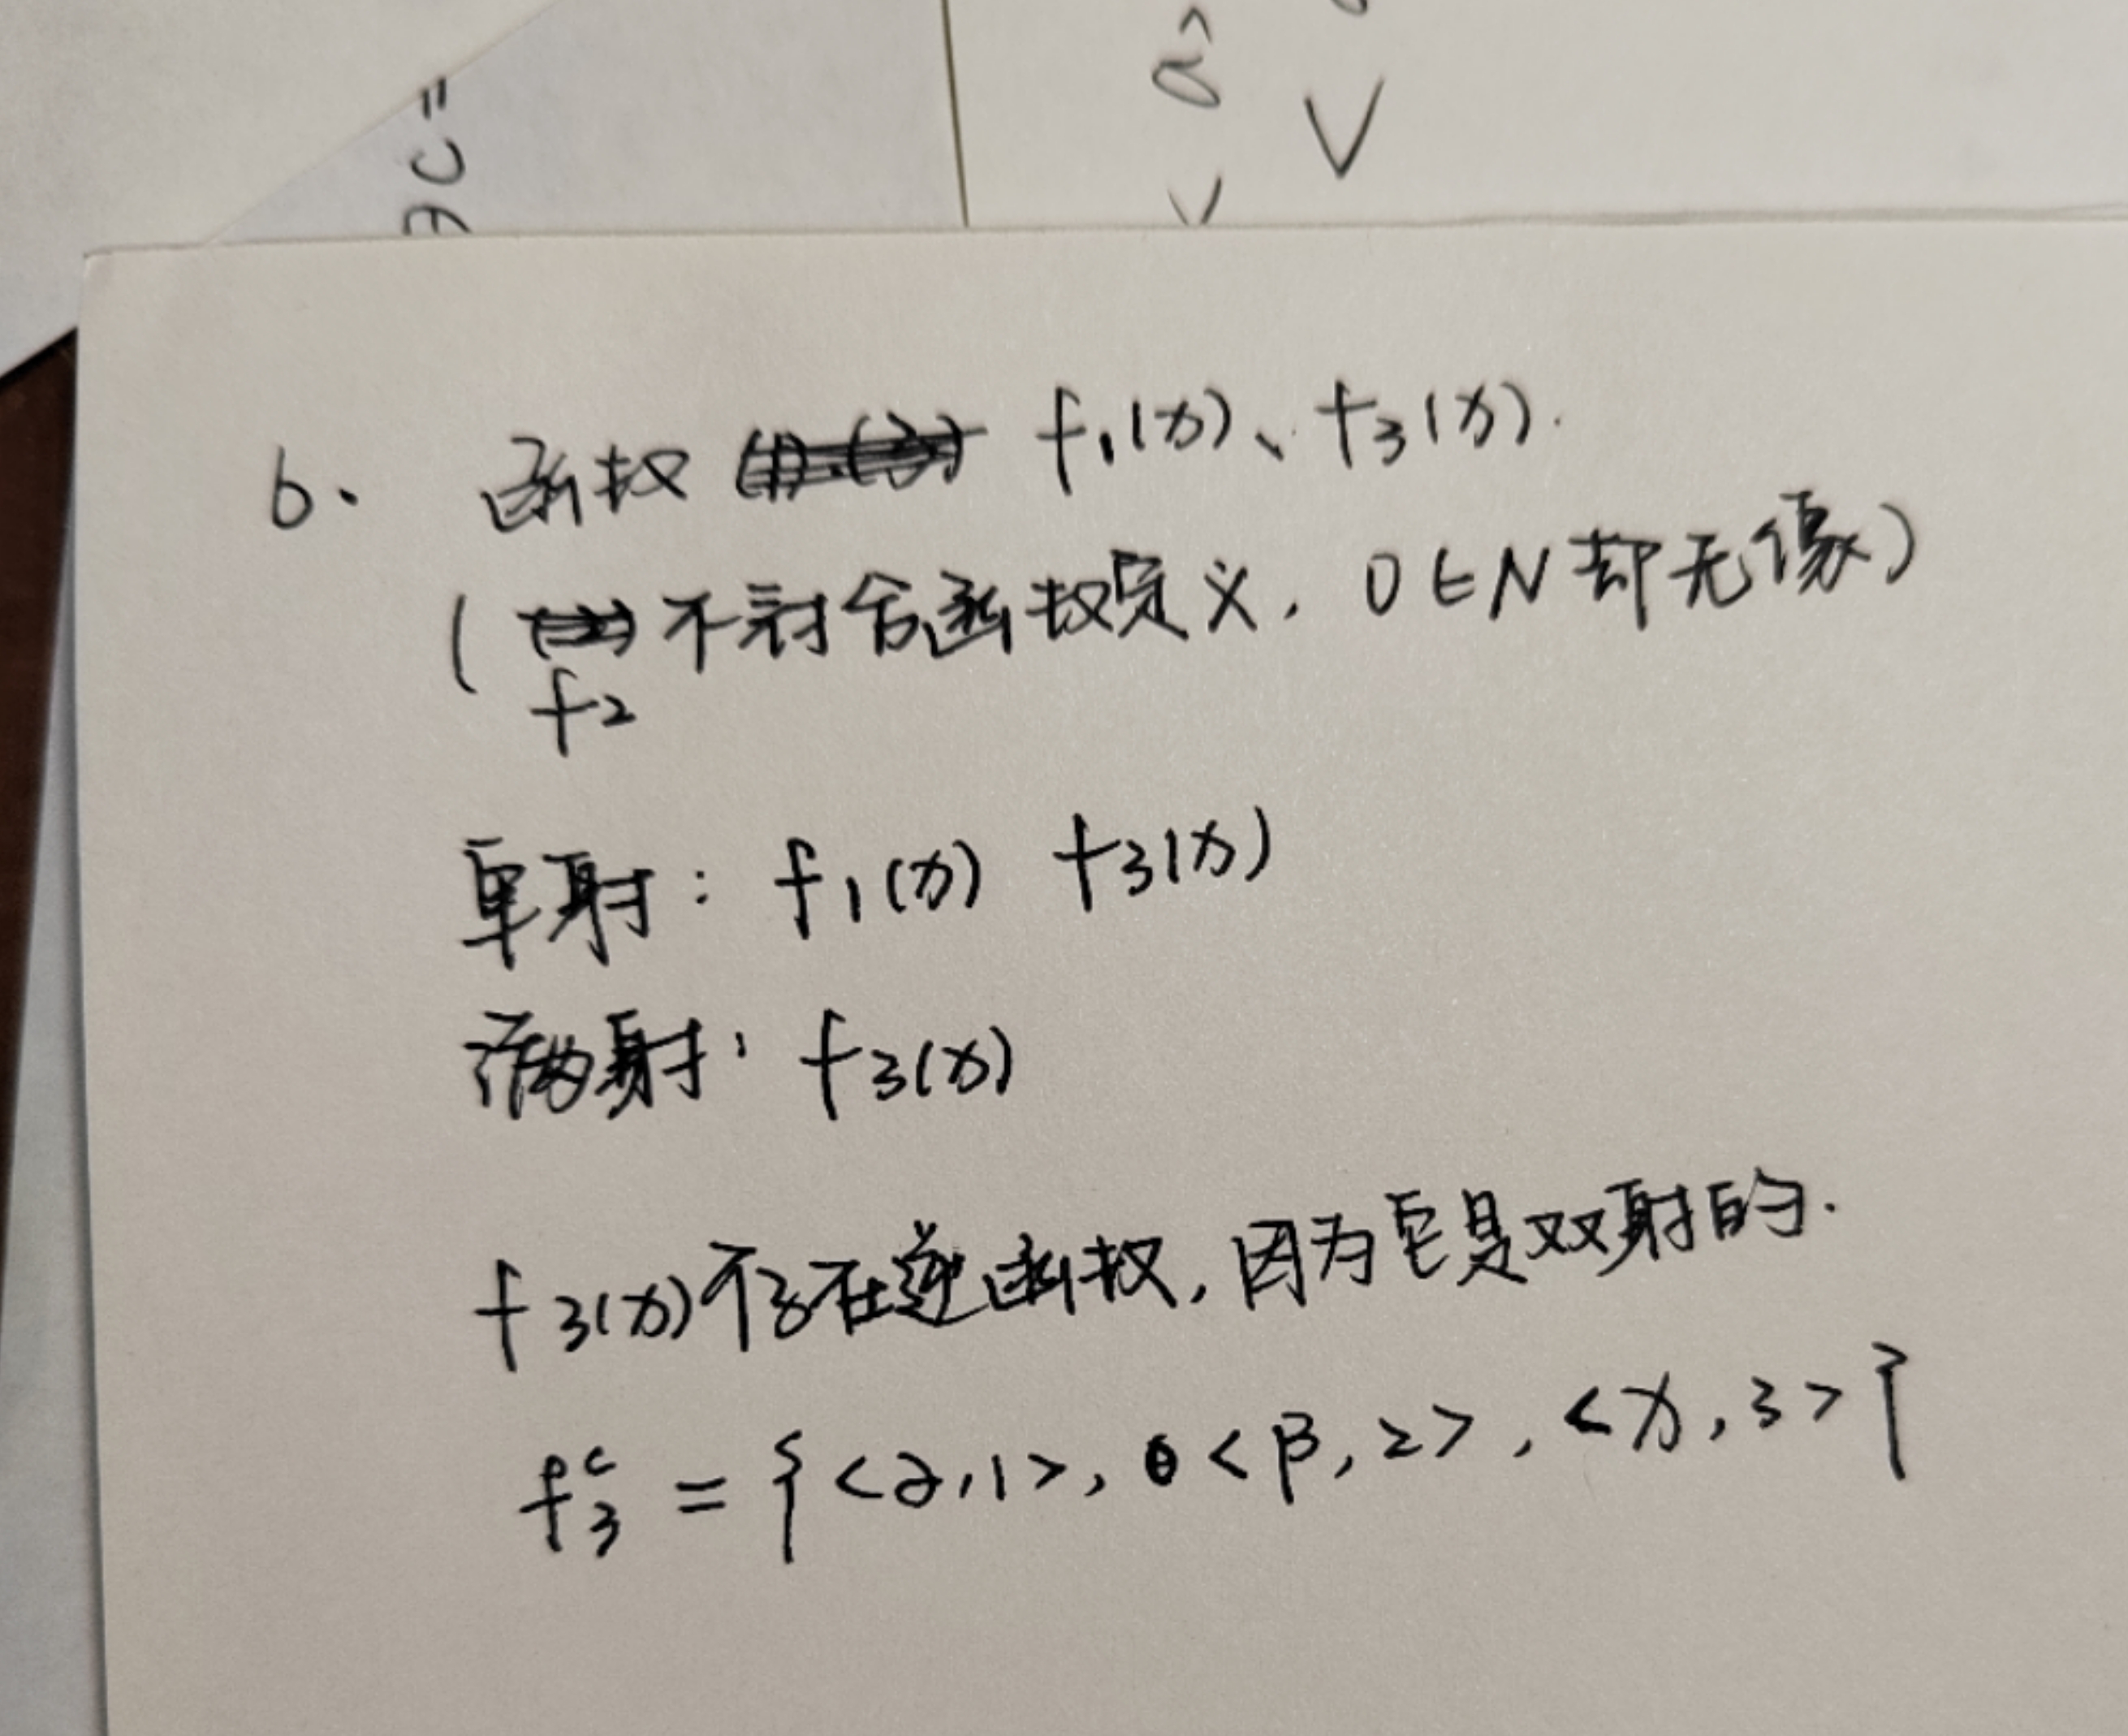 ∂C=
< a,
V
6. 函数 f₁(x)、f₃(x).
( f₂ 不符合函数定义, 0∈N却无像)
单射: f₁(x) f₃(x)
满射: f₃(x)
f₃(x)不存在逆函数, 因为它是双射的.
f₃ᶜ = {<∂,1>, <β,2>, <x,3>}